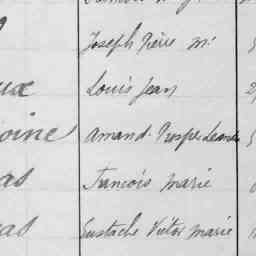 Joseph Pierre M.
ux Louis Jean
oine Amand Prosper Léandre
as François Marie
as Eustache Victor Marie